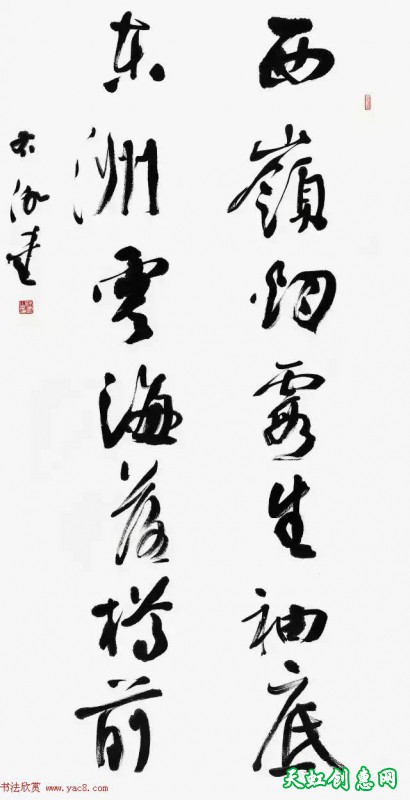 西嶺烟霞生袖底
東洲雲海落樽前
书法欣赏 www.yac8.com
天虹创惠网